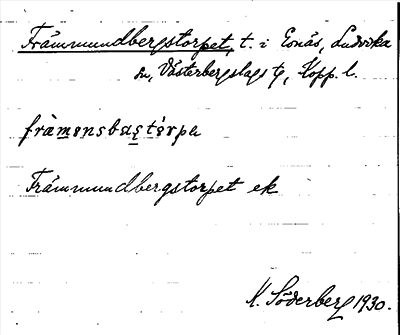 Främmundbergstorpet, t. i Eonäs, Ludvika
sn, Västerbergslags tg, Kopp. l.
fràmənsbaʂtórpa
Främmundbergstorpet ek
K. Söderberg 1930.